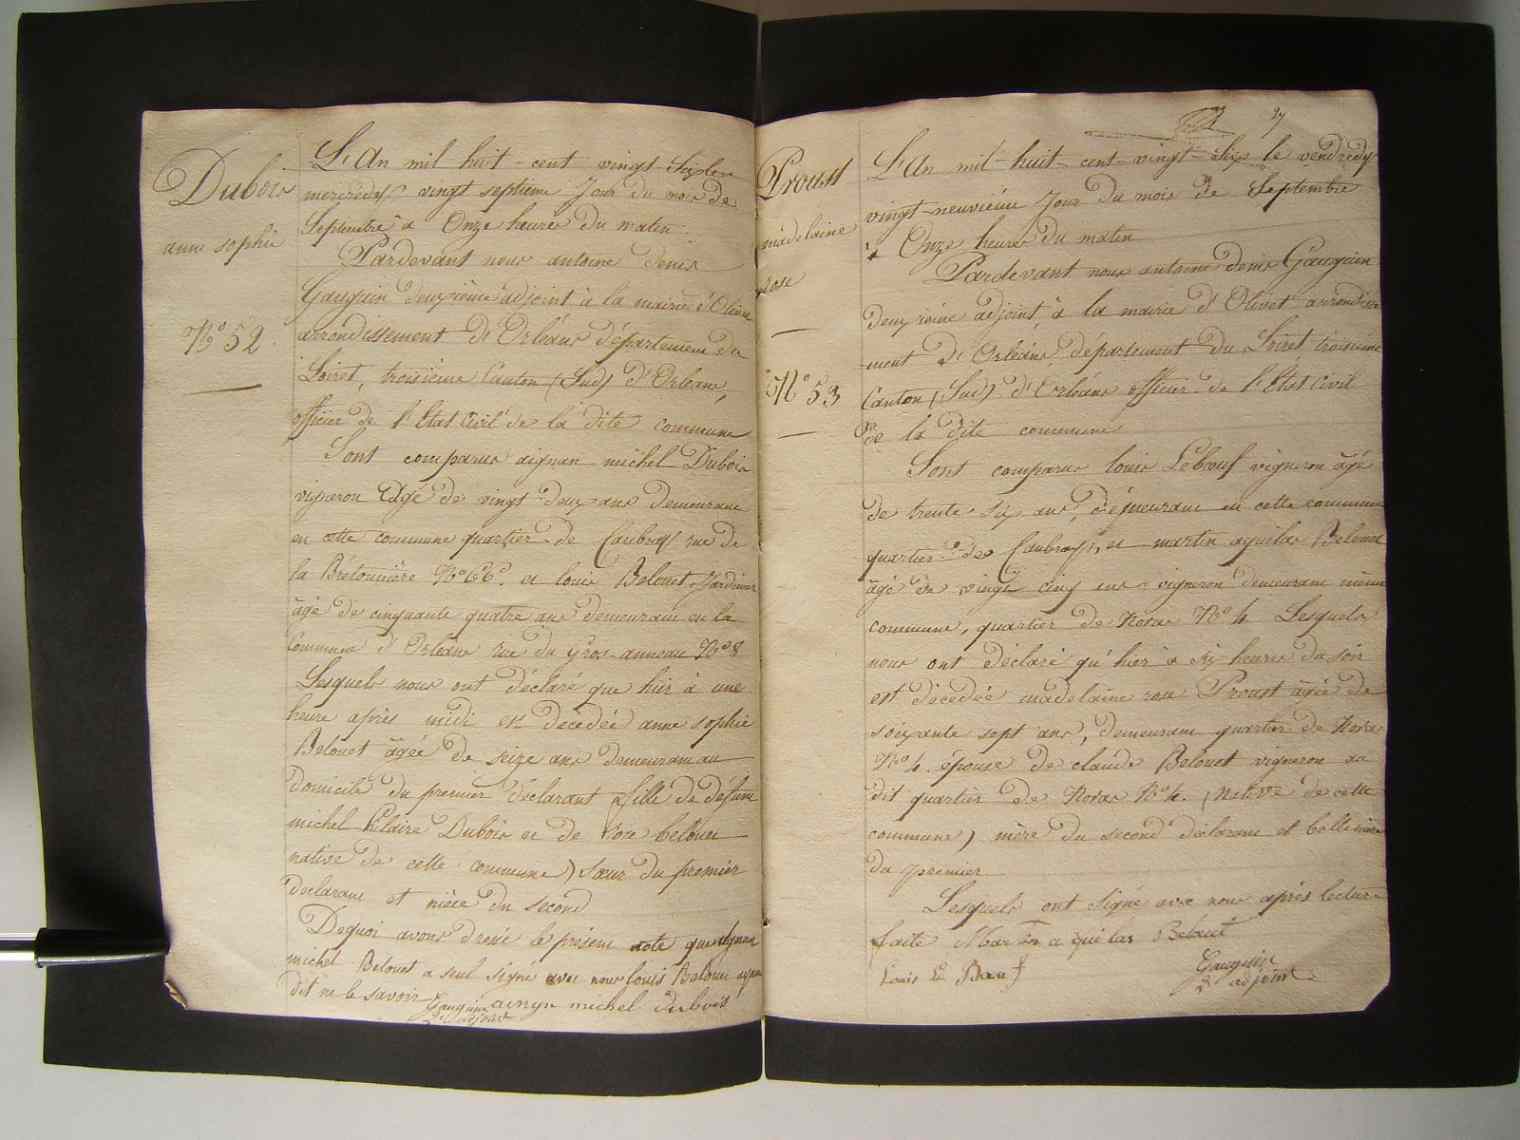 Dubois
anne sophie
N.o 52
L'An mil huit-cent vingt Six le
mercredy vingt septieme Jour du mois de
Septembre à Onze heures du matin.
Pardevant nous antoine denis
Gauguin deuxieme adjoint à la mairie d'Olivet
arrondissement D'Orléans département du
Loiret, troisieme Canton (Sud) d'Orléans,
officier de l'Etat Civil de la dite commune
Sont comparus aignan michel Dubois
vigneron Agé de vingt deux ans demeurant
en cette commune quartier de Caubray rue de
la Bretonnière N.o 66. et louis Belouet Jardinier
âgé de cinquante quatre ans demeurant en la
Commune d'Orléans rue du gros anneau N.o 8
Lesquels nous ont déclaré que hier à une
heure après midi est decedée anne sophie
Belouet âgée de seize ans demeurant au
Domicile du premier déclarant (fille de défunt
michel hilaire Dubois et de rose belouet
native de cette commune) soeur du premier
declarant et nièce du second
Dequoi avons dressé le présent acte que aignan
michel Belouet a seul signé avec nous louis Belouet ayant
dit ne le savoir
Gauguin ainyn michel dubois
2e adjoint
27
Proust
madelaine
rose
N.o 53
L'An mil-huit-cent-vingt-Six le vendredy
vingt-neuvième Jour du mois de Septembre
à Onze heures du matin
Pardevant nous antoine denis Gauguin
Deuxieme adjoint à la mairie d'Olivet arrondisse
-ment D'Orléans departement du Loiret troisieme
Canton (Sud) d'Orléans officier de l'Etat Civil
de la dite commune
Sont comparus louis Leboeuf vigneron âgé
de trente six ans, demeurant en cette commune
quartier de Caubray, et martin aquilas Belouet
âgé de vingt cinq ans vigneron demeurant même
commune, quartier de Noras N.o 4 Lesquels
nous ont déclaré qu'hier à six heures du soir
est décedée madelaine rose Proust âgée de
soixante sept ans, demeurant quartier de Noras
N.o 4. épouse de claude Belouet vigneron au
dit quartier de Noras N.o 4. (native de cette
commune) mère du second déclarant et belle mère
du premier
Lesquels ont signé avec nous après lecture
faite Martin aquilas Belouet
Louis Le Boeuf
Gauguin
2e adjoint